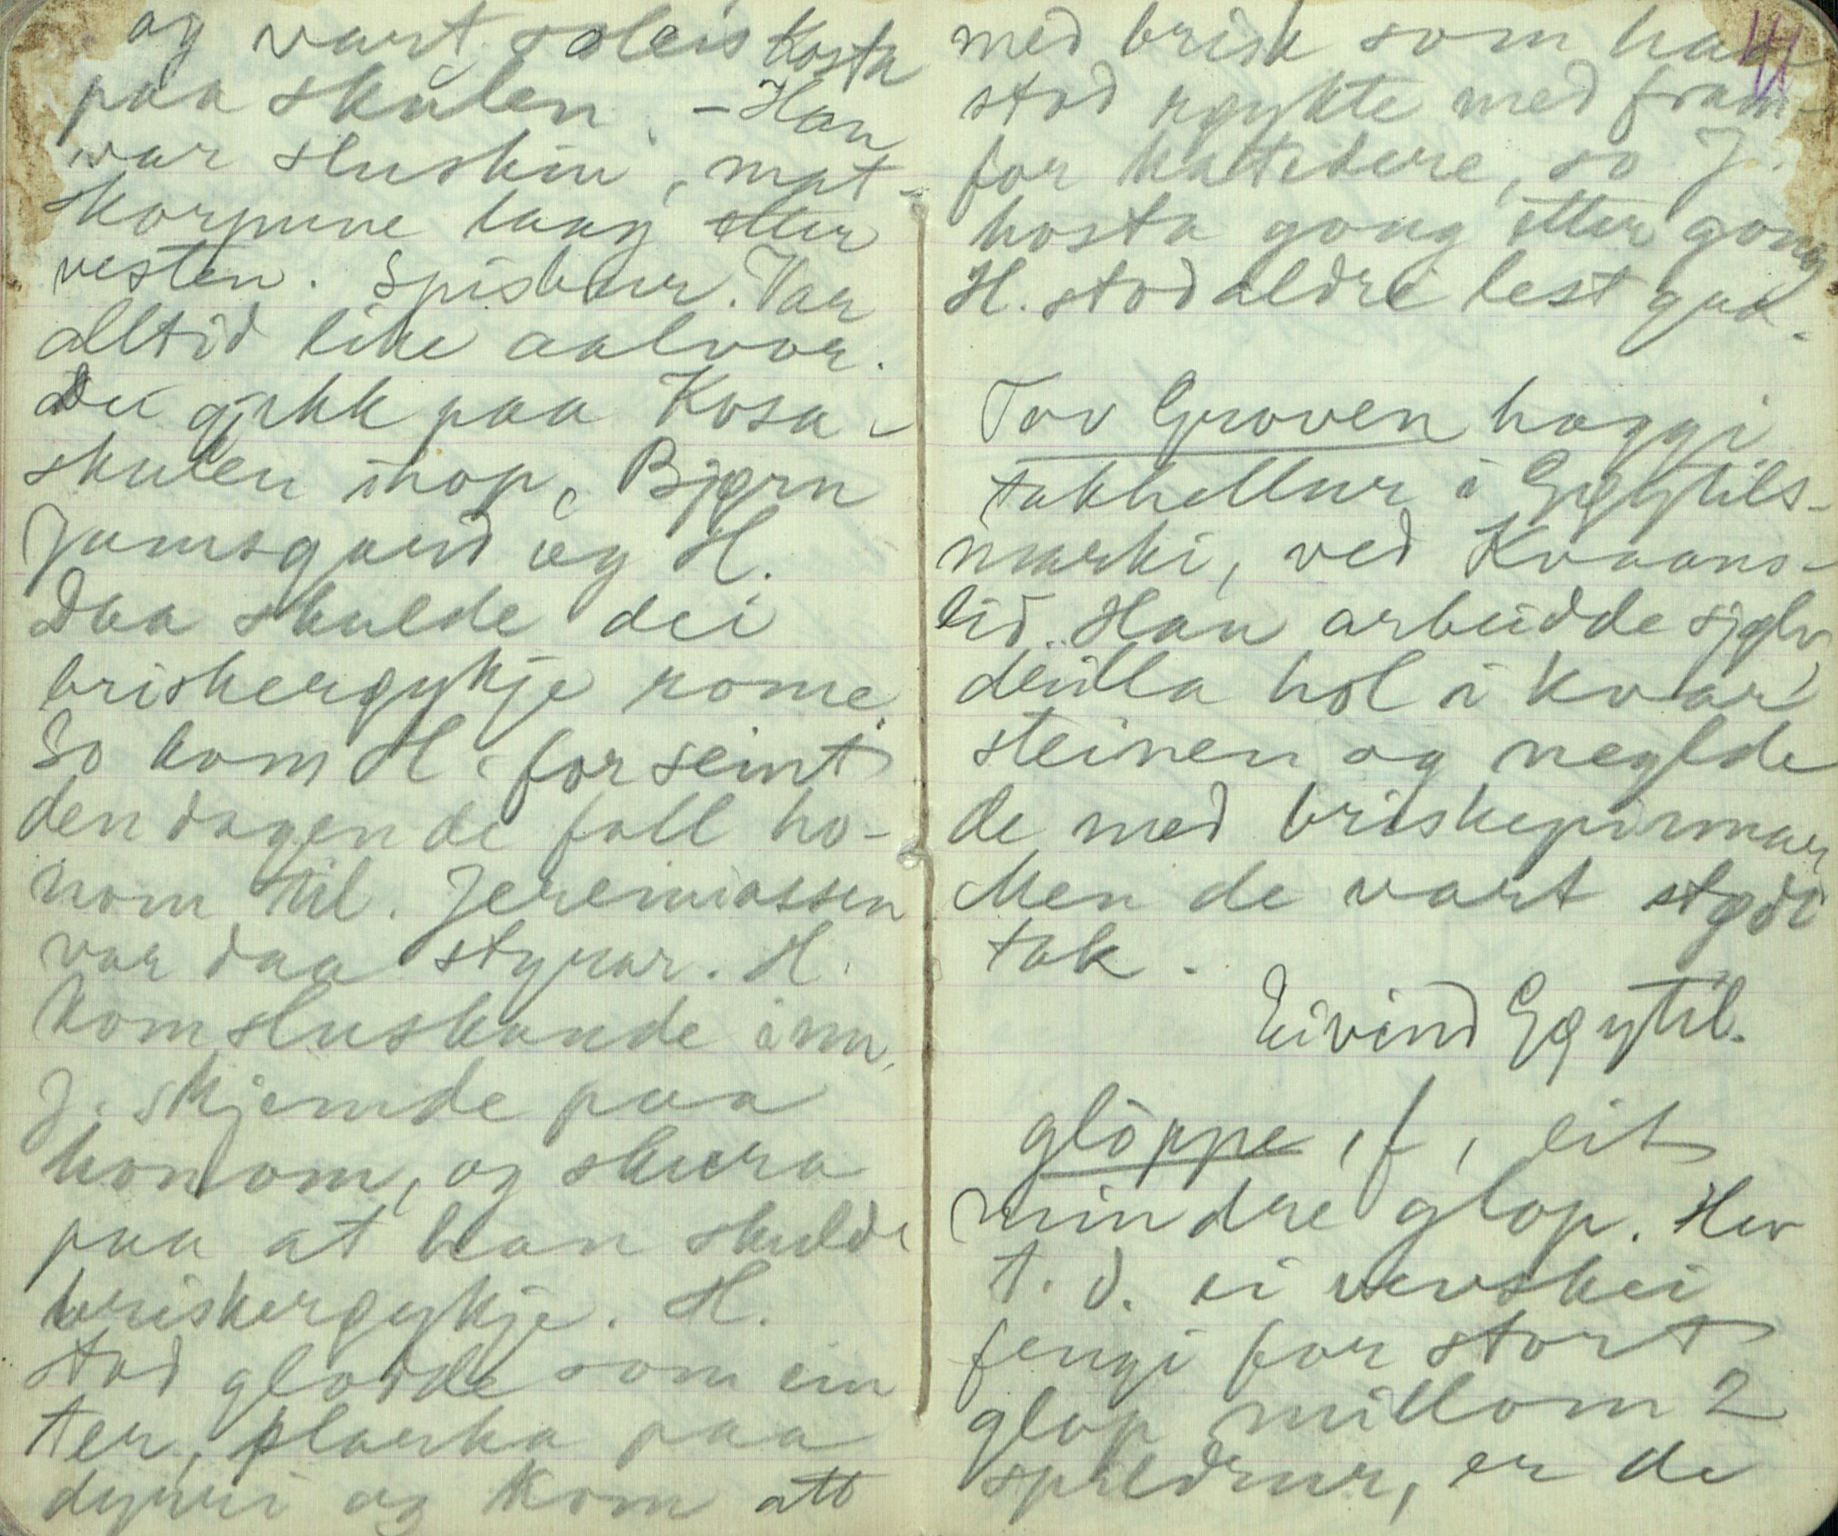 og vart soleis kosta
paa skulen. – Han
var sluskin, mat-
skorpune laag etter
vesten. Spisbur. Var
alltid like aalvor.
Dei gjekk paa Kosa-
skulen ihop, Bjørn
Jamsgard og H.
Daa skulde dei
briskerøykje rome.
So kom H. for seint
den dagen de fall ho-
nom til. Jeremiassen
var daa styrar. H.
kom sluskande inn,
J. skjemde paa
honom, og skura
paa at han skulde
briskerøykje. H.
stod glodde som ein
ter, plaska paa
dynni og kom att
med brisk som han
stod røykte med fram-
for katedere, so J.
hosta gong etter gong
H. stod aldri lest gad.
Tov Groven hoggi
takhellur i Gøytils-
marki, ved Kvaans-
lid. Han arbeidde sjølv,
drilla hol i kvar
steinen og neglde
de med briskepinnar
Men de vart stødt
tak.
Eivind Gøytil.
glöppe, f, eit
mindre glop. Hev
t. d. ei vevskei
fengi for stort
glop millom 2
spildrur, er de